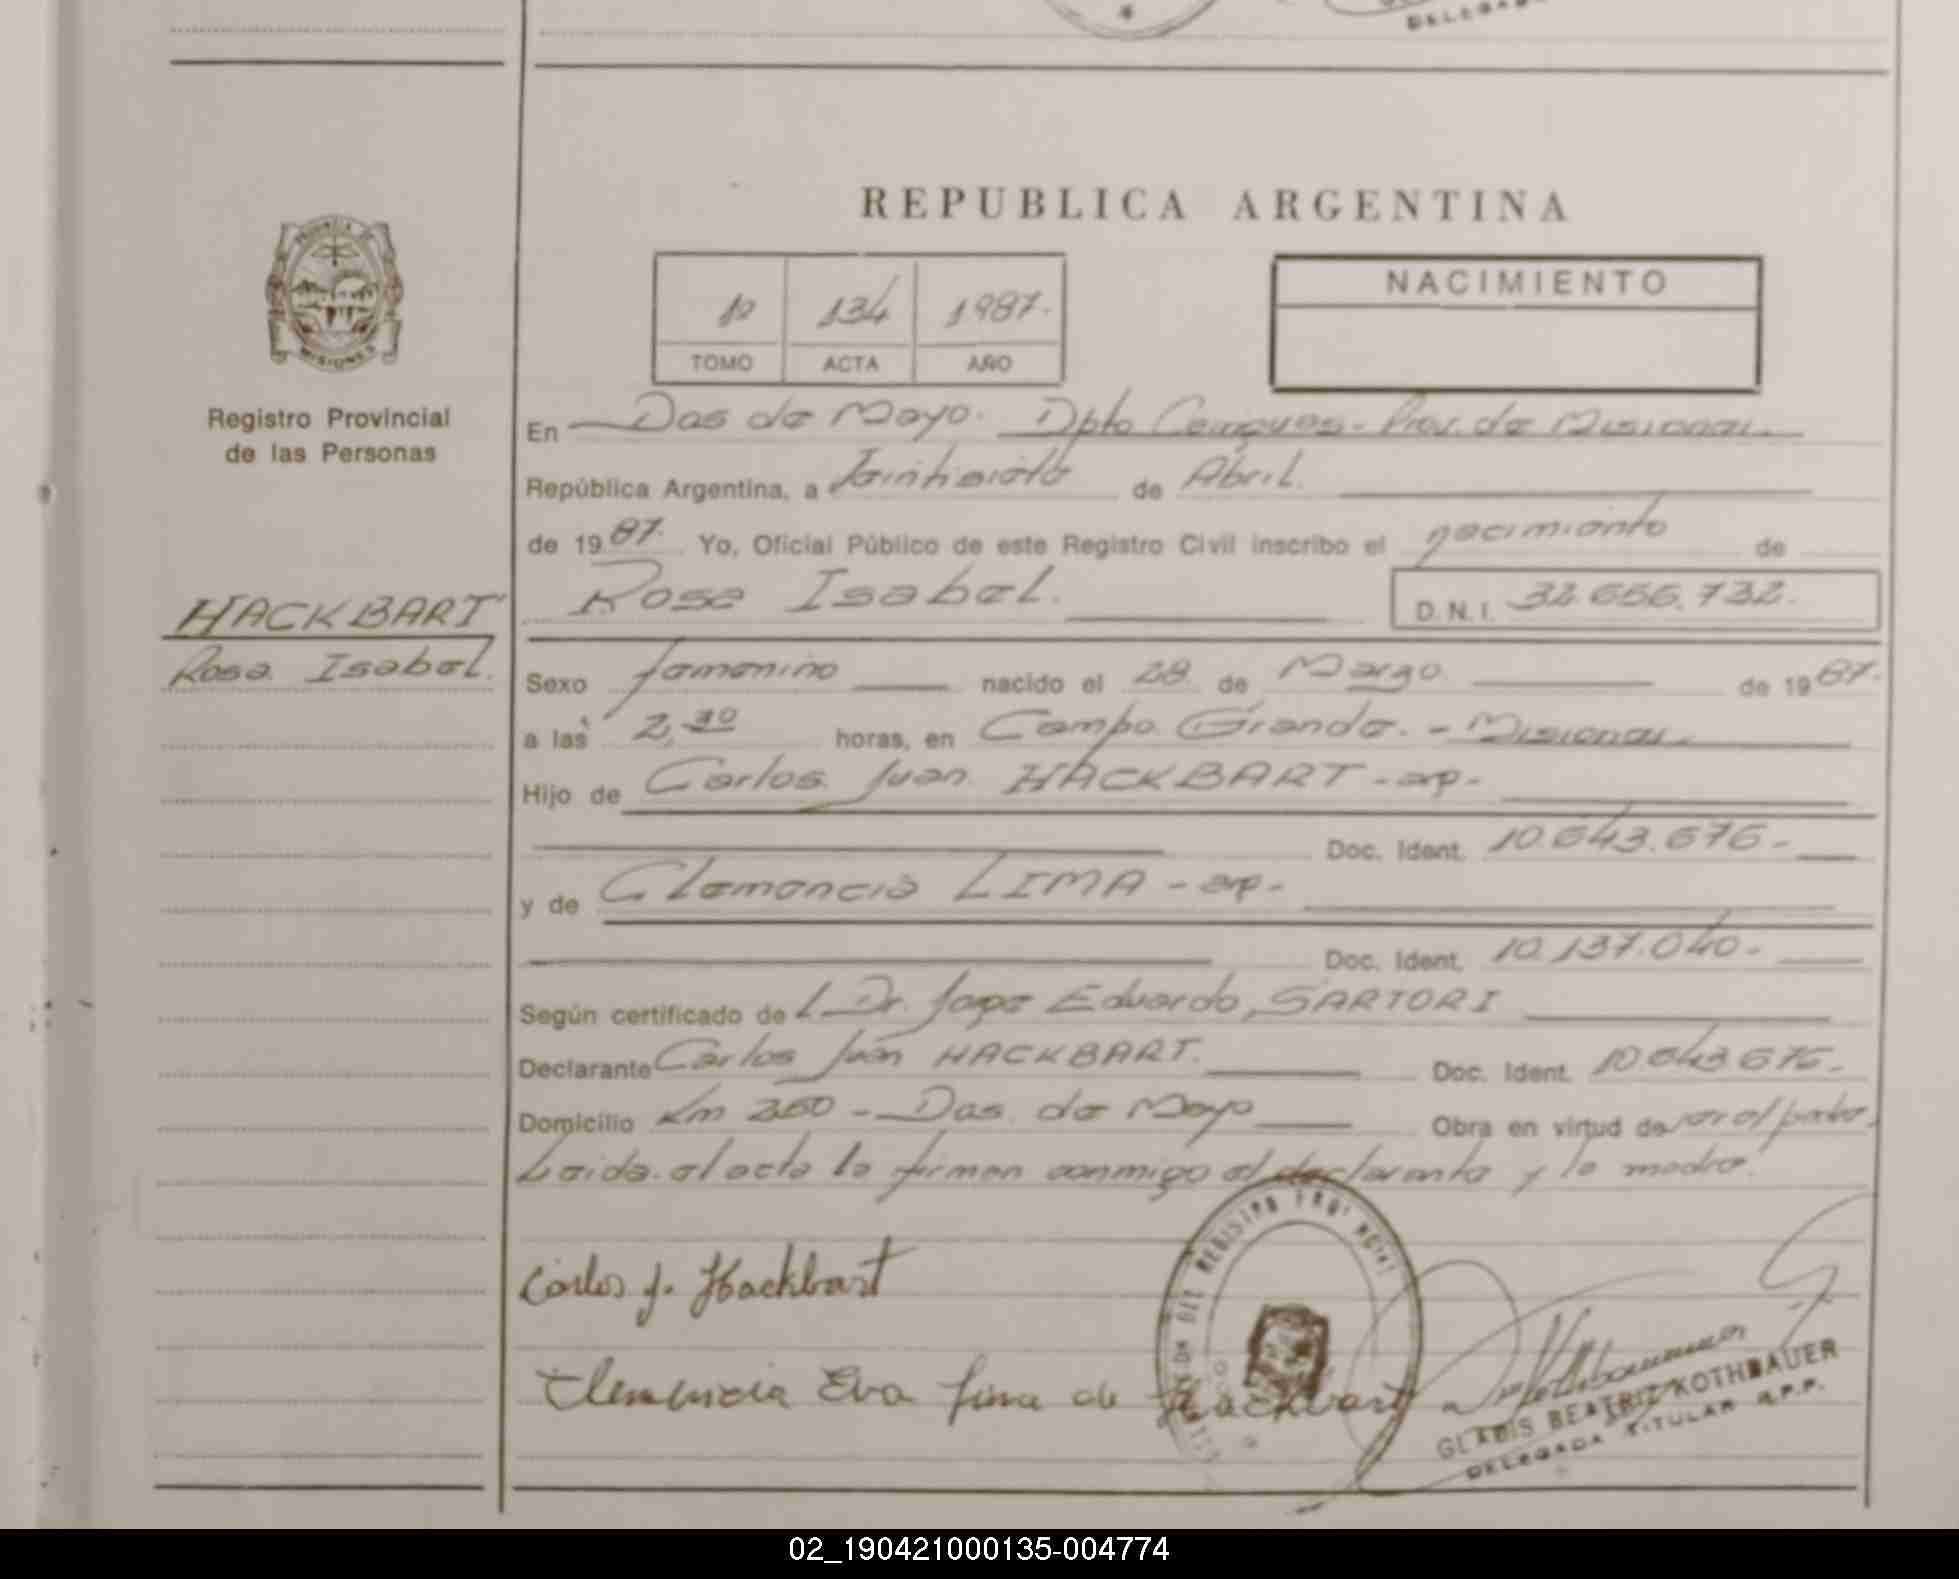 DELEGAD
REPUBLICA ARGENTINA
PROVINCIA DE
MISIONES
Registro Provincial
de las Personas
1º 134 1987.
TOMO ACTA AÑO
NACIMIENTO
En Dos de Mayo. Dpto Cainguas - Prov. de Misiones.
República Argentina, a Veintisiete de Abril.
de 1987. Yo, Oficial Público de este Registro Civil inscribo el nacimiento de
Rosa Isabel. D.N.I. 32.656.732.
HACKBART
Rosa Isabel.
Sexo femenino nacido el 28 de Marzo de 1987.
a las 2,30 horas, en Campo Grande. - Misiones.
Hijo de Carlos Juan HACKBART - arg -
Doc. Ident. 10.643.676 -
y de Clemencia LIMA - arg -
Doc. Ident. 10.137.040 -
Según certificado de L Dr. Jorge Eduardo, SARTORI
Declarante Carlos Juan HACKBART. Doc. Ident. 10.643.676 -
Domicilio Km 260 - Dos de Mayo Obra en virtud de ser el padre.
Leida el acta la firman conmigo el declarante y la madre.
Carlos J. Hackbart
Clemencia Eva Lima de Hackbart
DEL REGISTRO PROVINCIAL
GLADIS BEATRIZ KOTHBAUER
DELEGADA TITULAR R.P.P.
02_190421000135-004774